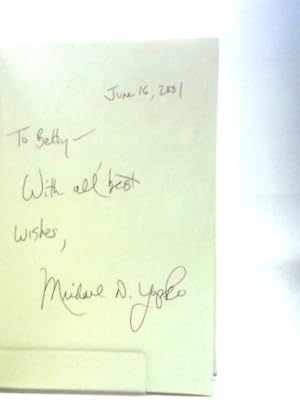 June 16, 2001
To Betty—
With all best
wishes,
Michael D. Yapko